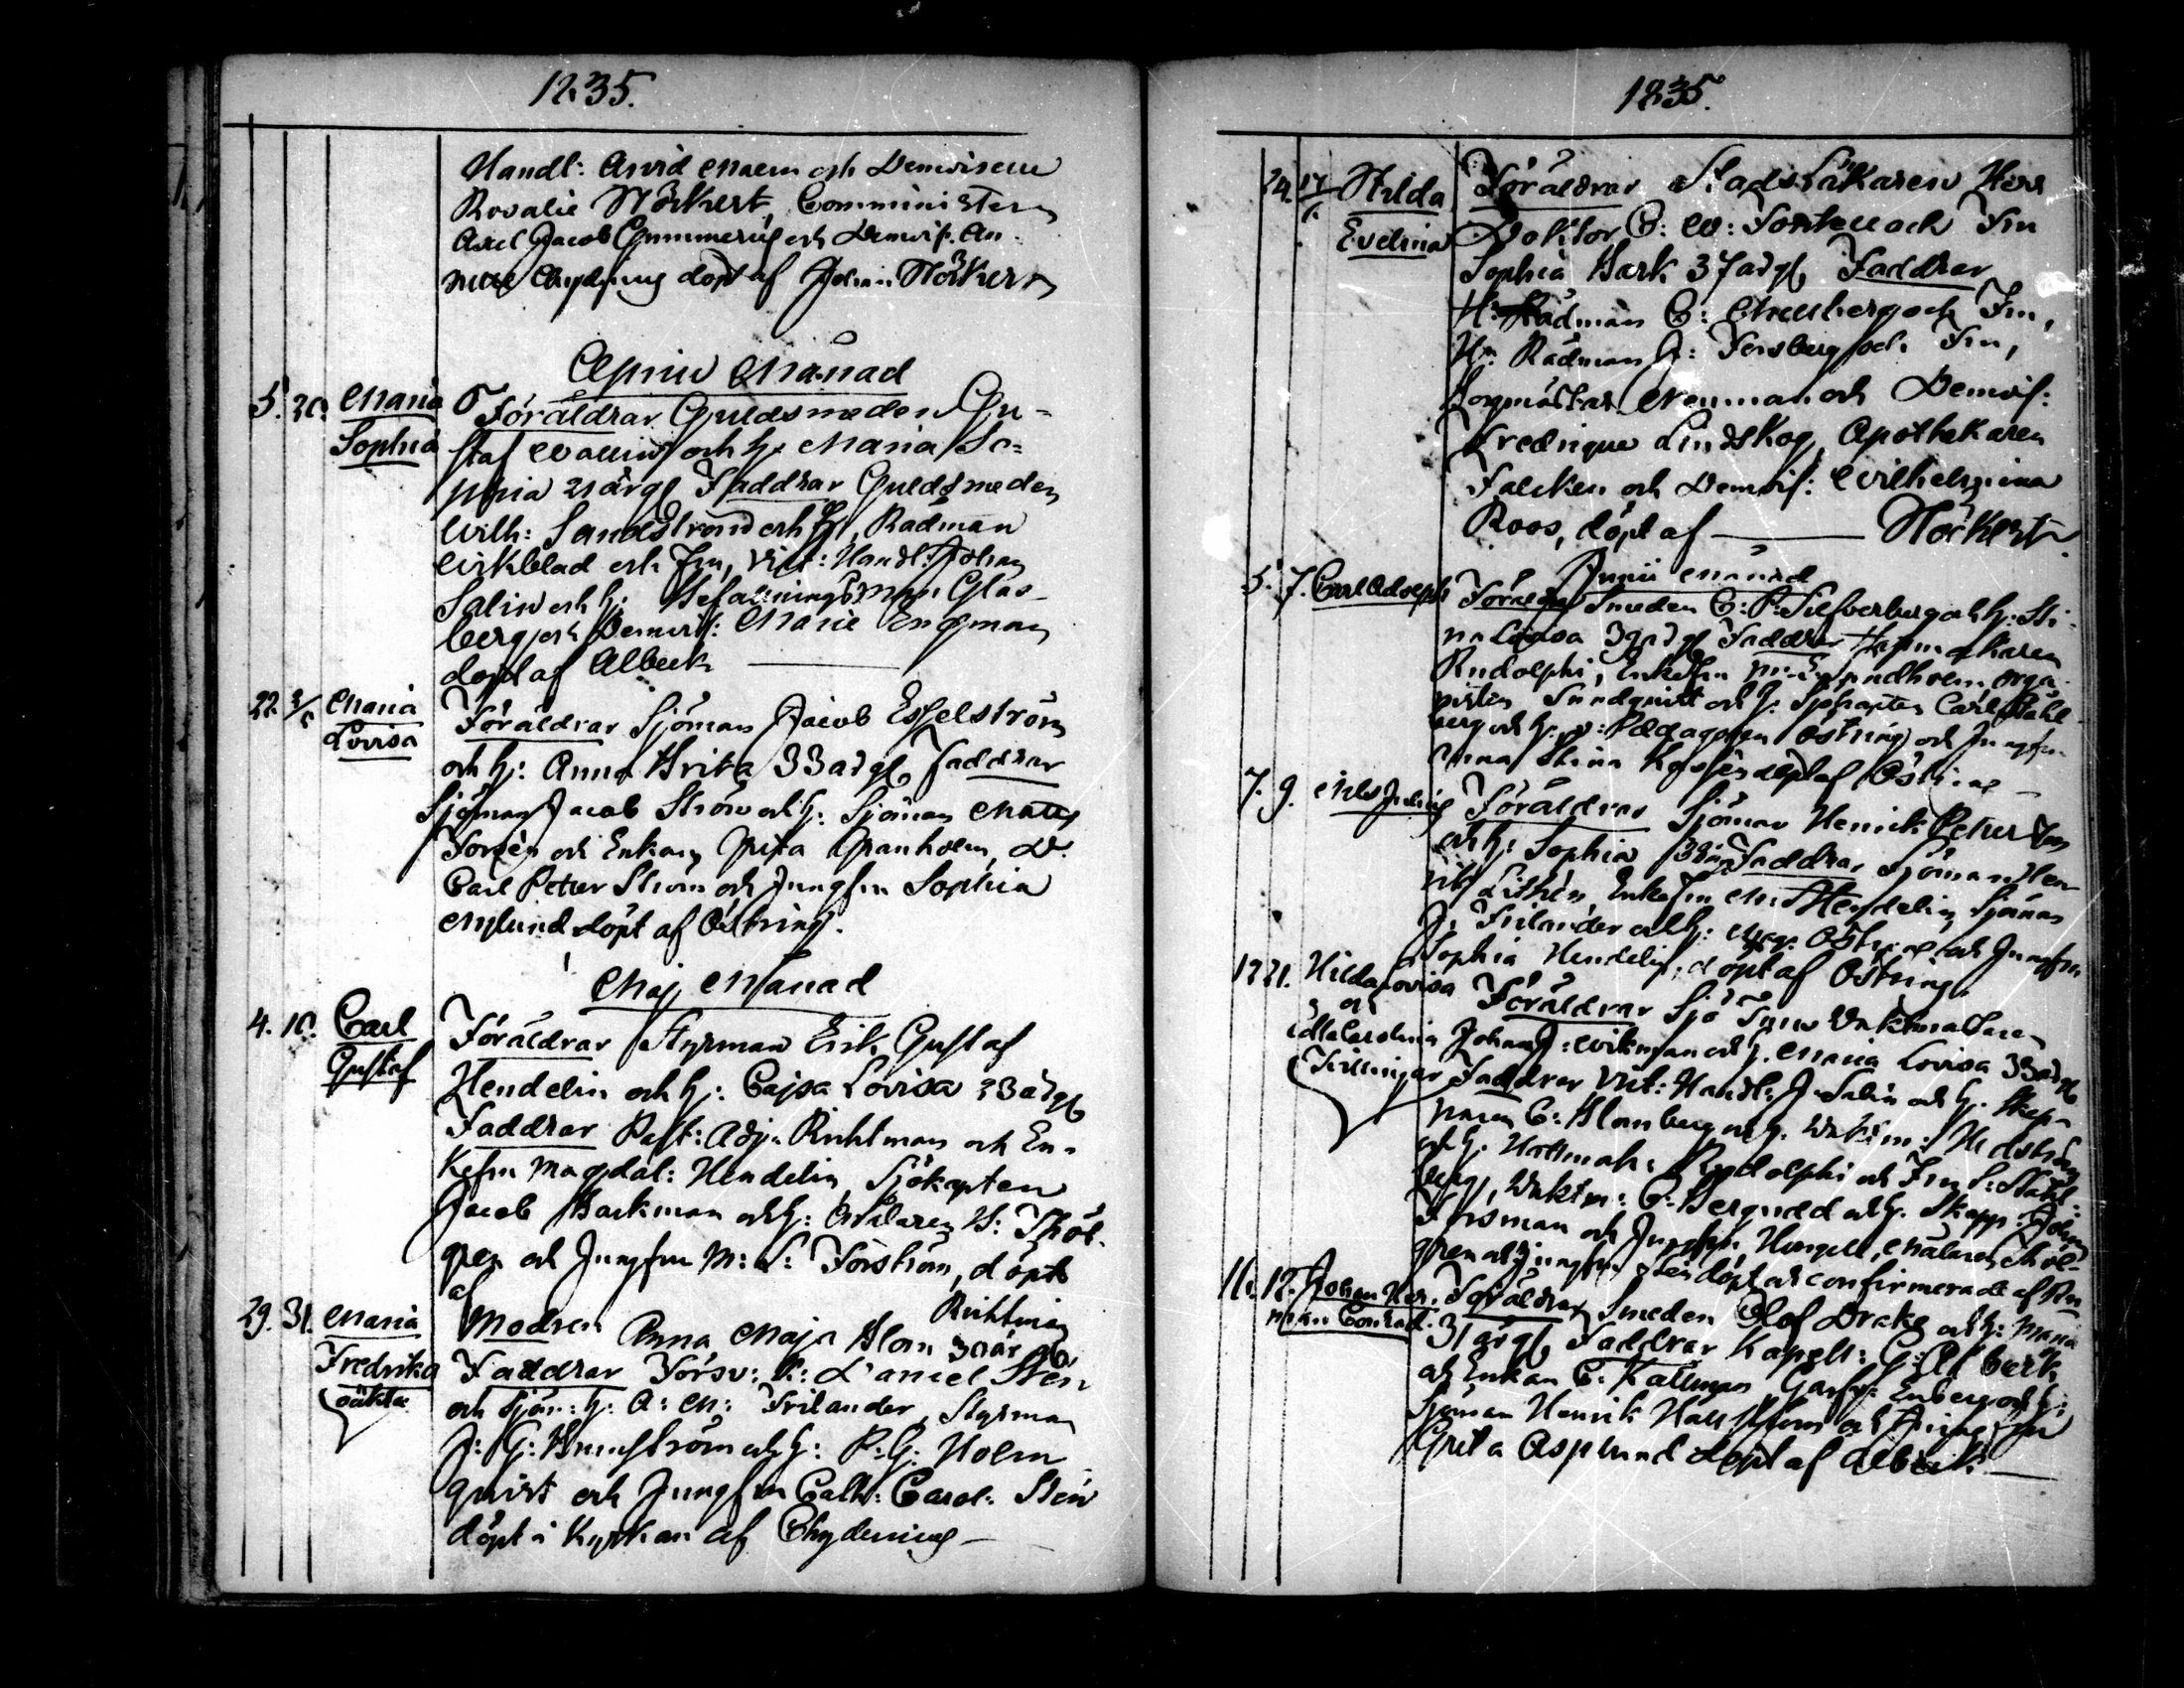 1835.
Handl: Arvid Malm och Demoiselle
Rosalie Höckert, Comministern
Axel Jacob Gummerus och Demois. An-
Chydenius döpt af Johan Höckert
April Månad
5. 30. Maria Föräldrar Guldsmeden Gu-
Sophia staf Wallin och h. Maria So-
phia 21 årg Faddrar Guldsmeden
Wilh: Sandström och h. Rådman
Wikblad och Fru, Vict: Handl: Johan
Salin och h: Befallningsman Glas-
berg och Demois: Marie Engman
döpt af Albeck
22. 3/5 Maria Föräldrar Sjöman Jacob Esselström
Lovisa och h: Anna Brita 33 årg Faddrar
Sjöman Jacob Ström och h: Sjöman Matts
Forsen och Enkan Grita Granholm, D.
Carl Petter Ström och Jungfru Sophia
Nylund döpt af Östring.
Maj Månad
4. 10. Carl Föräldrar Styrman Erik Gustaf
Gustaf Hendelin och h: Cajsa Lovisa 23 årg
Faddrar Past: Adj: Richtman och En-
kefru Magdal: Hendelin, Sjökapten
Jacob Backman och h: Målaren H:
gren och Jungfru M: L: Forström, döpt
af Richtman
29. 31. Maria Modren Anna Maja Blom 30 år
Fredrika Faddrar Försv: K: Daniel Sten
oäkta och Sjöm: h: A: M: Frilander, Styrman
J: G: och h: P: G: Holm-
quist och Jungfru Cath: Carol: Sten
döpt i Kyrkan af Chydenius
1835.
24. 17/6. Hilda Föräldrar StadsLäkaren Herr
Evelina Doktor C: W: Fontell och Fru
Sophia Bark 37 årg Faddrar
H: Rådman C: Mellberg och Fru,
Hr Rådman J: Forsberg och Fru,
Borgmästar Neuman och Demois:
Fredrique Lindskog, Apothekaren
Falcken och Demois: Wilhelmina
Roos, döpt af Höckert
Junii Månad
5. 7. Carl Adolph Föräldrar Smeden C: P: Silfverberg och h: Sti-
na Lovisa 39 årg Faddrar Hattmakaren
Rudolphi, Enkefru Sundholm, Orga-
nisten Sundquist och h: Sjökapten Carl Stahl-
berg och h: v: Pædagogen Östring och Jungfru
Anna Stina döpt af Östring
7. 9. Nils Julius Föräldrar Sjöman Henrik Petter
och h: Sophia Faddrar Sjöman Hen-
rik Lithén, Enkefru M: Hendelin, Sjöman
J: Frilander och h: Östring och Jungfru
Sophia Hendelin, döpt af Östring
12 21. Hilda Lovisa Föräldrar Sjö Tull Vaktmästaren
och Carolina Johan J: Wikman och h: Maria Lovisa 33 årg
Tvillingar Faddrar Vict: Handl: J: Salin och h: Skep-
paren C: Blomberg och h: Vaktm: Hedström
och h: Hattmak: Rudolphi och Fru S: Stahl-
berg, Vaktm: C: Bergudd och h: Skepp: Johan
Forsman och Jungfru Hongell, Målaren
gren och Jungfru döpt och confirmerade af
11. 12. Johan Her- Föräldrar Smeden Olof Drake och h: Maria
man Conrad. 31 årg Faddrar Kapell: C: Albeck
och Enkan C: Kallman, Garfv: Enberg och h:
Sjöman Henrik Hallström och Jungfru
Greta Asplund döpt af Albeck